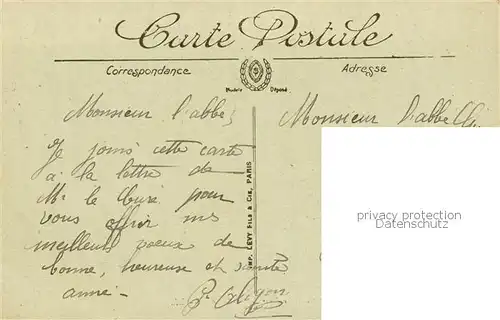 Carte Postale
Correspondance
Adresse
Modèle Déposé
Monsieur l'abbé,
Monsieur l'abbé
Je joins cette carte
à la lettre de
Mr le Curé pour
vous offrir mes
meilleurs voeux de
bonne, heureuse et sainte
année -
IMP. LÉVY FILS & CIE, PARIS
privacy protection
Datenschutz